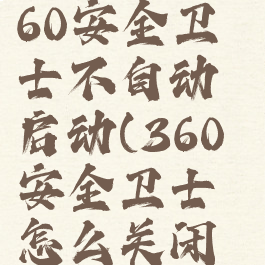 60安全卫
士不自动
启动(360
安全卫士
怎么关闭